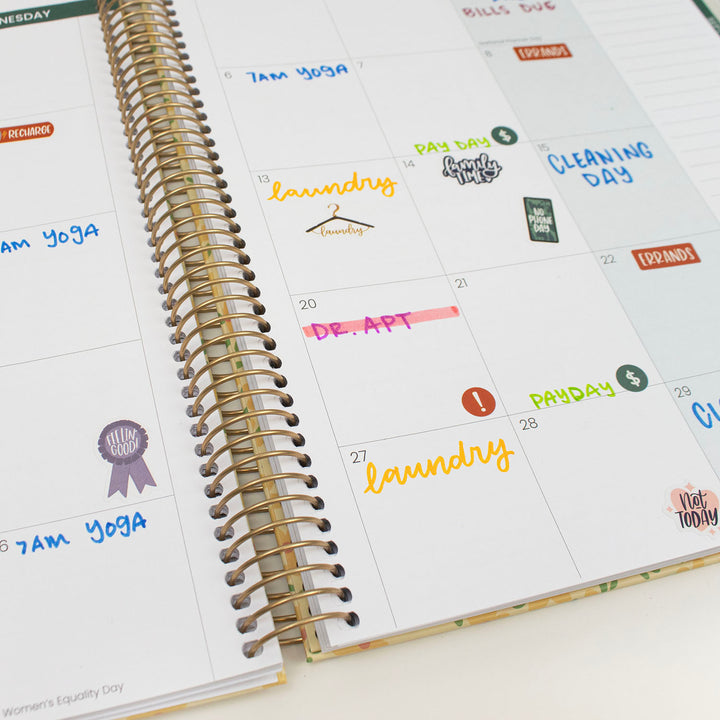 NESDAY
RECHARGE
AM YOGA
FEELIN'
GOOD!
6
7AM YOGA
Women's Equality Day
BILLS DUE
6
7AM YOGA
7
PAY DAY
$
8
ERRANDS
13
laundry
laundry
14
family
time
NO
PHONE
DAY
15
CLEANING
DAY
20
DR. APT
!
21
PAYDAY
$
22
ERRANDS
27
laundry
28
Not
TODAY
29